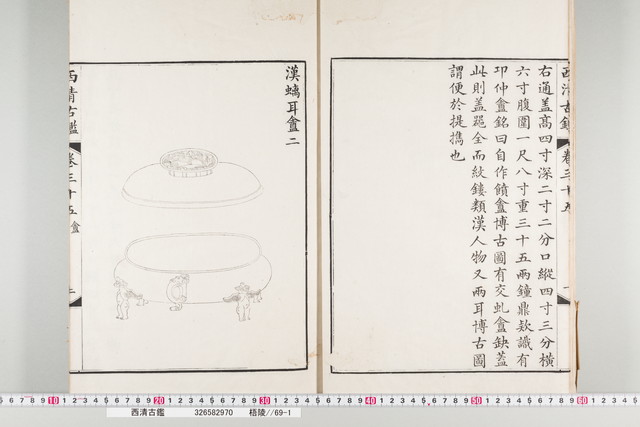 右通蓋高四寸深二寸二分口縱四寸三分橫
六寸腹圍一尺八寸重三十五兩鐘鼎欵識有
邛仲盦銘曰自作饙盦博古圖有交虬盦缺蓋
此則蓋䀇全而紋鏤類漢人物又兩耳博古圖
謂便於提擕也
漢螭耳盦二
西清古鑑
卷三十五 盦
西清古鑑 326582970 梧陵//69-1